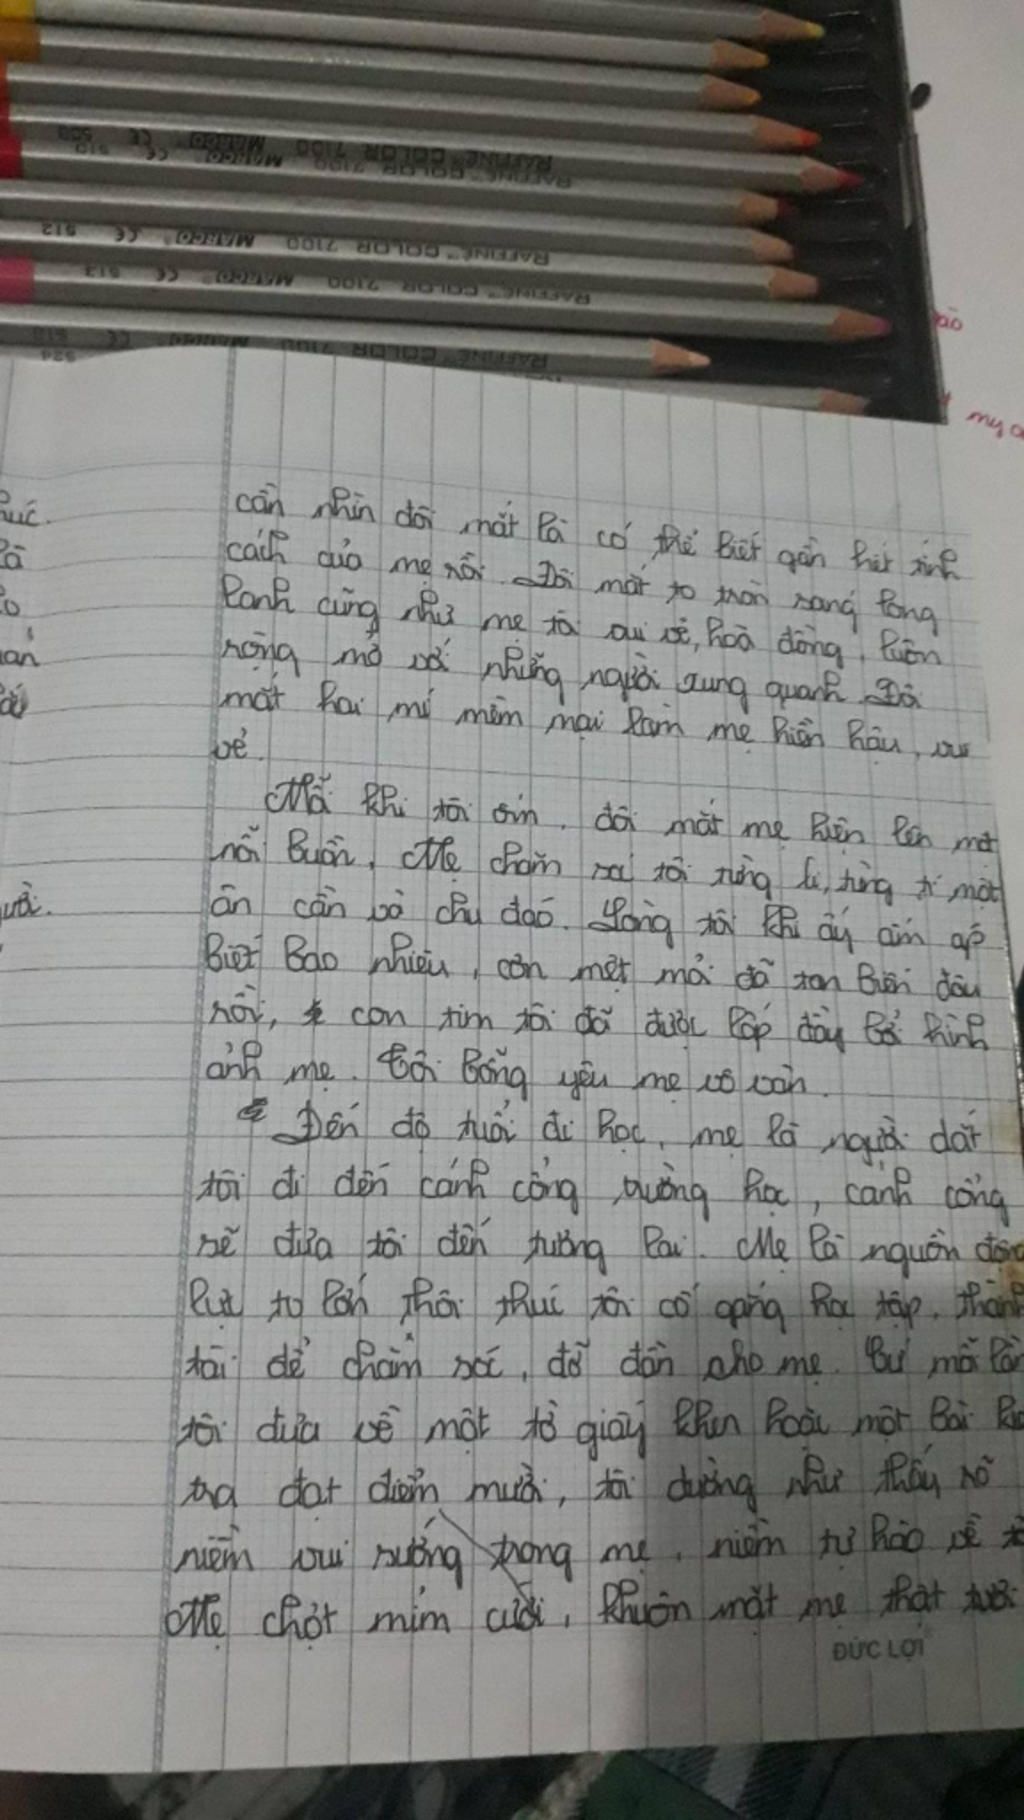 RAFFINÉ COLOR 7100 MARCO CE 509
RAFFINÉ COLOR 7100 MARCO CE 510
RAFFINÉ COLOR 7100 MARCO CE 512
RAFFINÉ COLOR 7100 MARCO CE 513
RAFFINÉ COLOR 7100 MARCO CE
524
ảo
my
cần nhìn đôi mắt là có thể biết gần hết tính
cách của mẹ rồi. Đôi mắt to tròn long
lanh cũng như mẹ tôi vui vẻ, hoà đồng, luôn
rộng mở với những người xung quanh. Đôi
mắt hai mí mềm mại làm mẹ hiền hậu, vui
vẻ.
Mỗi khi tôi ốm, đôi mắt mẹ hiện lên một
nỗi buồn, Mẹ chăm sóc tôi từng li, từng tí một
ân cần và chu đáo. Lòng tôi khi ấy ấm áp
biết bao nhiêu, cơn mệt mỏi đã tan biến đâu
rồi, con tim tôi đã được lấp đầy bởi hình
ảnh mẹ. Tôi bỗng yêu mẹ vô vàn.
Đến độ tuổi đi học, mẹ là người dắt
tôi đi đến cánh cổng trường học, cánh cổng
sẽ đưa tôi đến tương lai. Mẹ là nguồn động
lực to lớn thôi thúc tôi cố gắng học tập, thành
tài để chăm sóc, đỡ đần cho mẹ. Cứ mỗi lần
tôi đưa về một tờ giấy khen hoặc một bài
tra đạt điểm mười, tôi dường như thấy rõ
niềm vui sướng trong mẹ, niềm tự hào về
Mẹ chợt mỉm cười, khuôn mặt mẹ thật tươi
ĐỨC LỢI